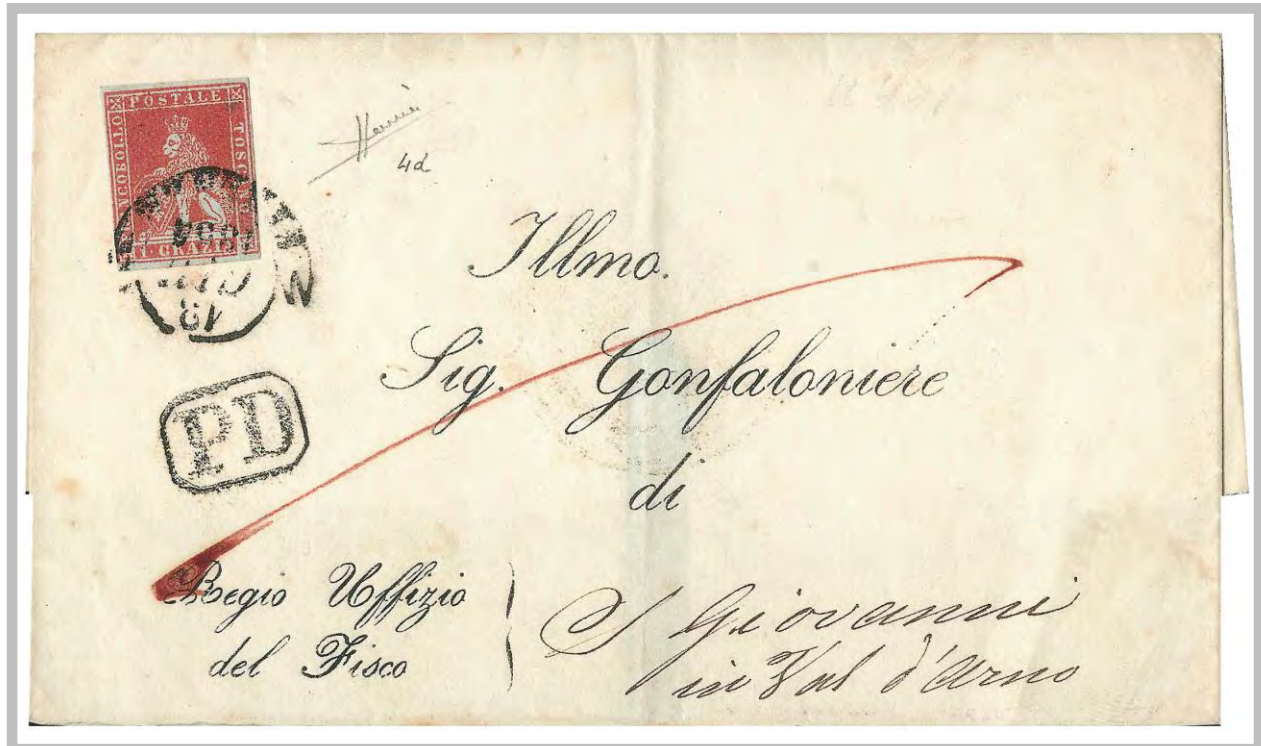 FRANCOBOLLO POSTALE TOSCANO
4d
Illmo.
Sig. Gonfaloniere
di
PD
18
Regio Uffizio
del Fisco
S Giovanni
in Val d'Arno